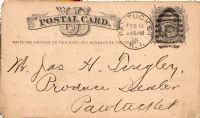 POSTAL CARD.
WRITE THE ADDRESS ON THIS SIDE - THE MESSAGE ON THE OTHER
PAWTUCKET
FEB
R.I.
Mr. Jas H.
Produce Dealer
Pawtucket